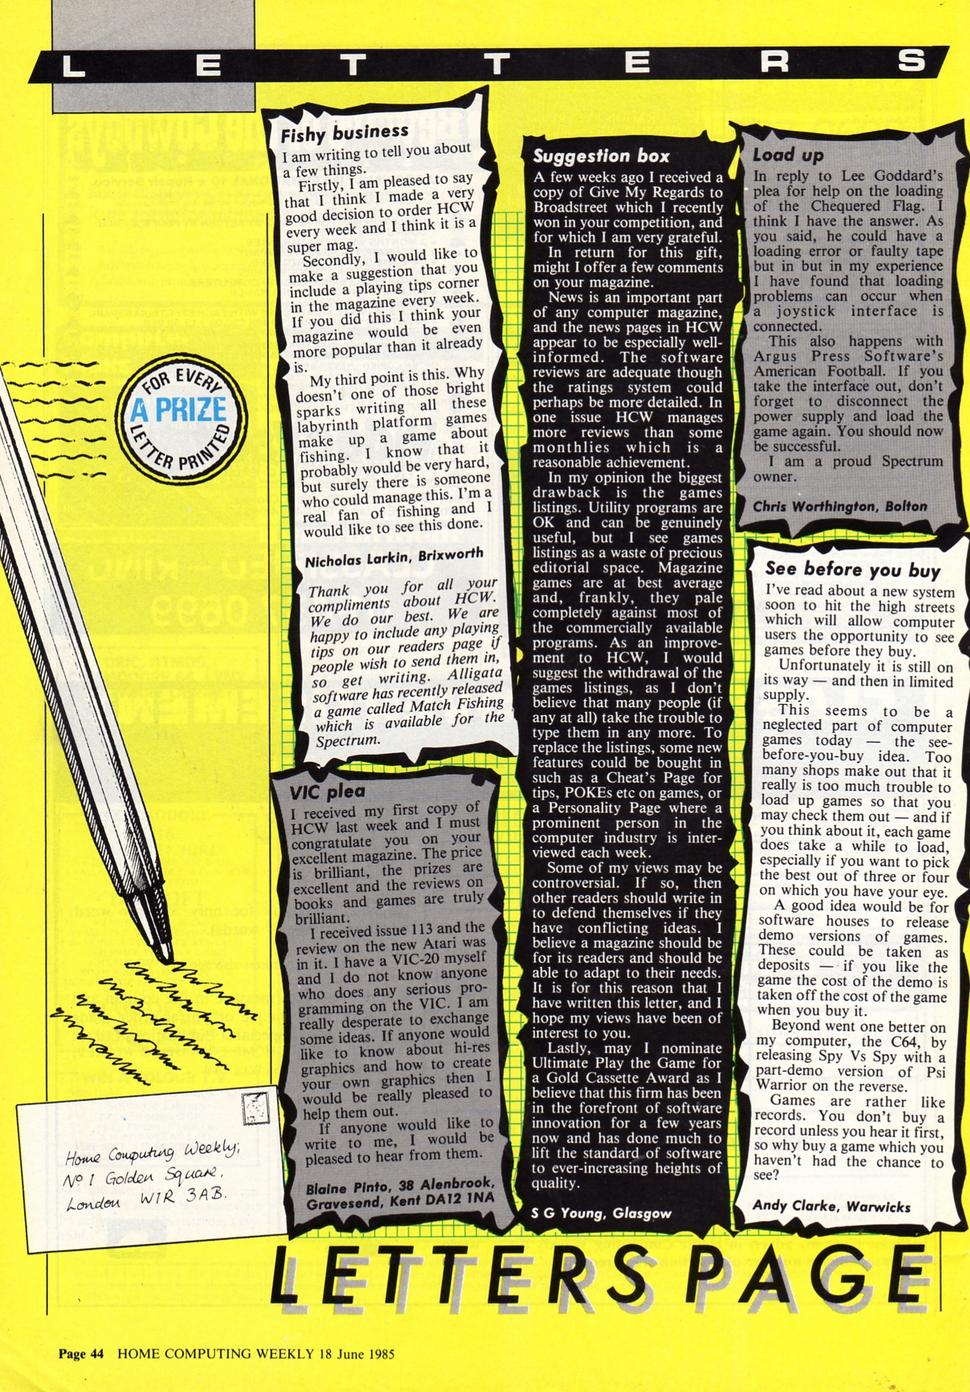 LETTERS
Fishy business
I am writing to tell you about
a few things.
Firstly, I am pleased to say
that I think I made a very
good decision to order HCW
every week and I think it is a
super mag.
Secondly, I would like to
make a suggestion that you
include a playing tips corner
in the magazine every week.
If you did this I think your
magazine would be even
more popular than it already
is.
My third point is this. Why
doesn't one of those bright
sparks writing all these
labyrinth platform games
make up a game about
fishing. I know that it
probably would be very hard,
but surely there is someone
who could manage this. I'm a
real fan of fishing and I
would like to see this done.
Nicholas Larkin, Brixworth
Thank you for all your
compliments about HCW.
We do our best. We are
happy to include any playing
tips on our readers page if
people wish to send them in,
so get writing. Alligata
software has recently released
a game called Match Fishing
which is available for the
Spectrum.
VIC plea
I received my first copy of
HCW last week and I must
congratulate you on your
excellent magazine. The price
is brilliant, the prizes are
excellent and the reviews on
books and games are truly
brilliant.
I received issue 113 and the
review on the new Atari was
in it. I have a VIC-20 myself
and I do not know anyone
who does any serious pro-
gramming on the VIC. I am
really desperate to exchange
some ideas. If anyone would
like to know about hi-res
graphics and how to create
your own graphics then I
would be really pleased to
help them out.
If anyone would like to
write to me, I would be
pleased to hear from them.
Blaine Pinto, 38 Alenbrook,
Gravesend, Kent DA12 1NA
Suggestion box
A few weeks ago I received a
copy of Give My Regards to
Broadstreet which I recently
won in your competition, and
for which I am very grateful.
In return for this gift,
might I offer a few comments
on your magazine.
News is an important part
of any computer magazine,
and the news pages in HCW
appear to be especially well-
informed. The software
reviews are adequate though
the ratings system could
perhaps be more detailed. In
one issue HCW manages
more reviews than some
monthlies which is a
reasonable achievement.
In my opinion the biggest
drawback is the games
listings. Utility programs are
OK and can be genuinely
useful, but I see games
listings as a waste of precious
editorial space. Magazine
games are at best average
and, frankly, they pale
completely against most of
the commercially available
programs. As an improve-
ment to HCW, I would
suggest the withdrawal of the
games listings, as I don't
believe that many people (if
any at all) take the trouble to
type them in any more. To
replace the listings, some new
features could be bought in
such as a Cheat's Page for
tips, POKEs etc on games, or
a Personality Page where a
prominent person in the
computer industry is inter-
viewed each week.
Some of my views may be
controversial. If so, then
other readers should write in
to defend themselves if they
have conflicting ideas. I
believe a magazine should be
for its readers and should be
able to adapt to their needs.
It is for this reason that I
have written this letter, and I
hope my views have been of
interest to you.
Lastly, may I nominate
Ultimate Play the Game for
a Gold Cassette Award as I
believe that this firm has been
in the forefront of software
innovation for a few years
now and has done much to
lift the standard of software
to ever-increasing heights of
quality.
S G Young, Glasgow
Load up
In reply to Lee Goddard's
plea for help on the loading
of the Chequered Flag. I
think I have the answer. As
you said, he could have a
loading error or faulty tape
but in but in my experience
I have found that loading
problems can occur when
a joystick interface is
connected.
This also happens with
Argus Press Software's
American Football. If you
take the interface out, don't
forget to disconnect the
power supply and load the
game again. You should now
be successful.
I am a proud Spectrum
owner.
Chris Worthington, Bolton
See before you buy
I've read about a new system
soon to hit the high streets
which will allow computer
users the opportunity to see
games before they buy.
Unfortunately it is still on
its way — and then in limited
supply.
This seems to be a
neglected part of computer
games today — the see-
before-you-buy idea. Too
many shops make out that it
really is too much trouble to
load up games so that you
may check them out — and if
you think about it, each game
does take a while to load,
especially if you want to pick
the best out of three or four
on which you have your eye.
A good idea would be for
software houses to release
demo versions of games.
These could be taken as
deposits — if you like the
game the cost of the demo is
taken off the cost of the game
when you buy it.
Beyond went one better on
my computer, the C64, by
releasing Spy Vs Spy with a
part-demo version of Psi
Warrior on the reverse.
Games are rather like
records. You don't buy a
record unless you hear it first,
so why buy a game which you
haven't had the chance to
see?
Andy Clarke, Warwicks
FOR EVERY
A PRIZE
LETTER PRINTED
Home Computing Weekly,
No 1 Golden Square,
London W1R 3AB.
LETTERS PAGE
Page 44 HOME COMPUTING WEEKLY 18 June 1985